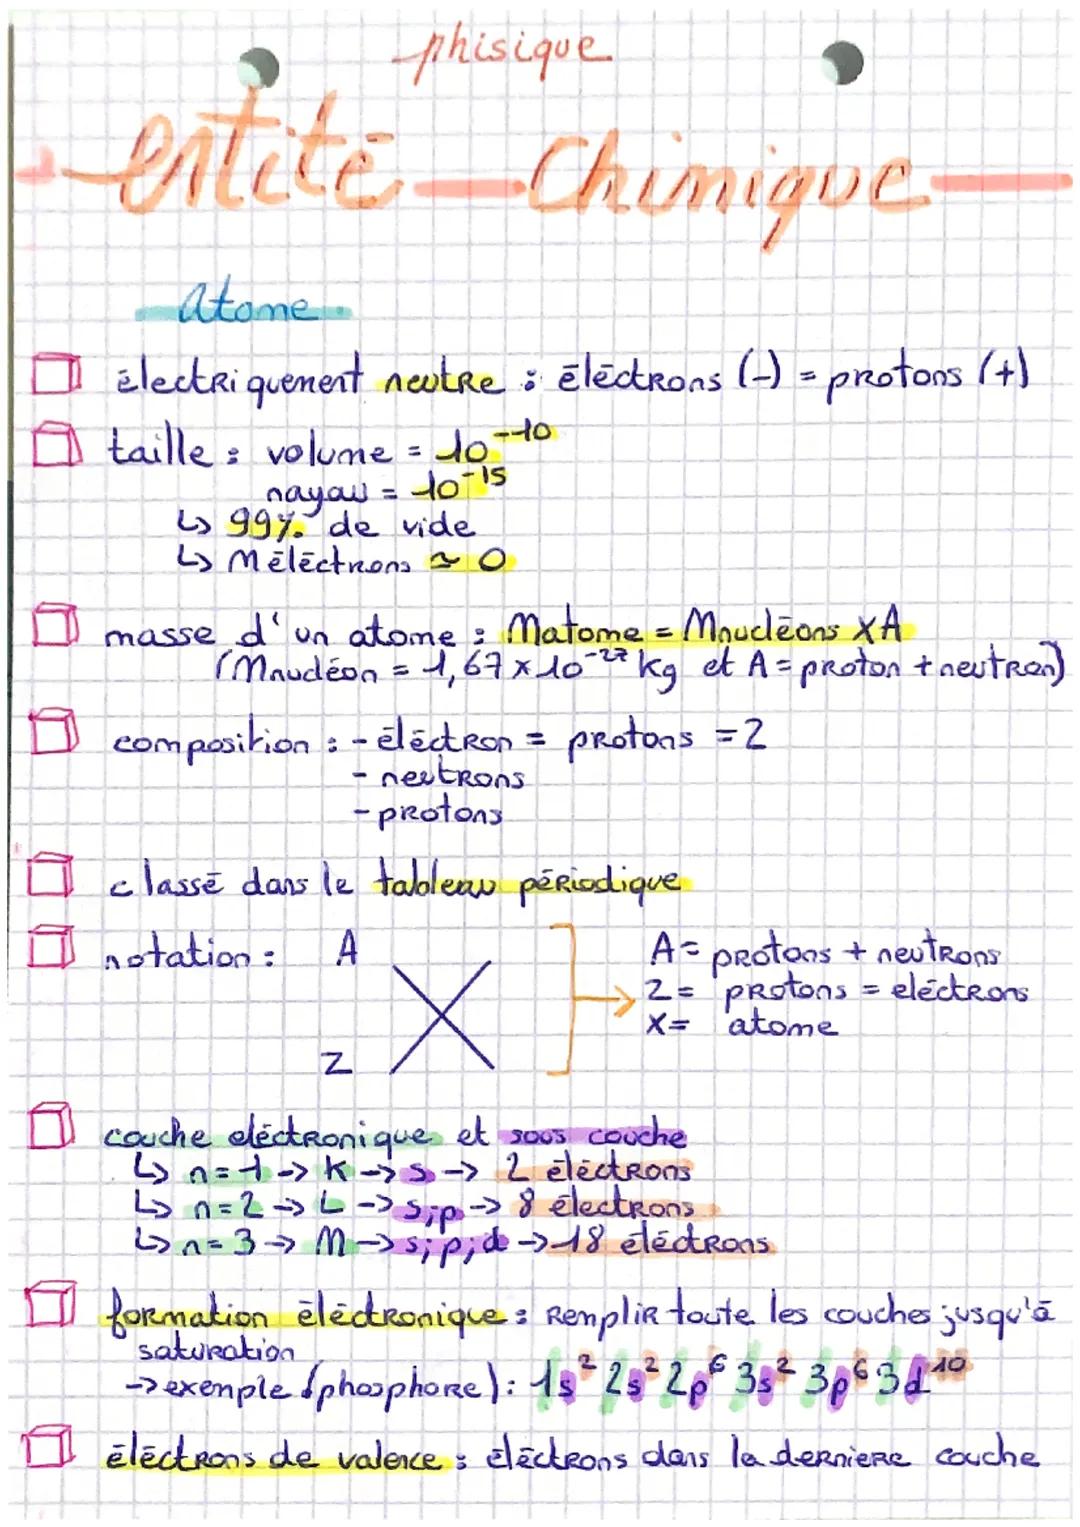 phisique
entité Chimique
atome
électriquement neutre : éléctrons (-) = protons (+)
taille : volume = 10⁻¹⁰
nayau = 10⁻¹⁵
↳ 99% de vide
↳ Méléctrons ≃ 0
masse d'un atome : Matome = Mnucléons × A
(Mnucléon = 1,67 × 10⁻²⁷ kg et A = proton + neutron)
composition : - éléctron = protons = Z
- neutrons
- protons
classé dans le tableau périodique
notation : A
A = protons + neutrons
Z = protons = eléctrons
X = atome
X
Z
couche eléctronique et sous couche
↳ n = 1 -> K -> s -> 2 éléctrons
↳ n = 2 -> L -> s;p -> 8 électrons
↳ n = 3 -> M -> s;p;d -> 18 éléctrons
formation éléctronique : Remplir toute les couches jusqu'à
saturation
-> exemple (phosphore) : 1s² 2s² 2p⁶ 3s² 3p⁶ 3d¹⁰
éléctrons de valence : éléctrons dans la derniere couche